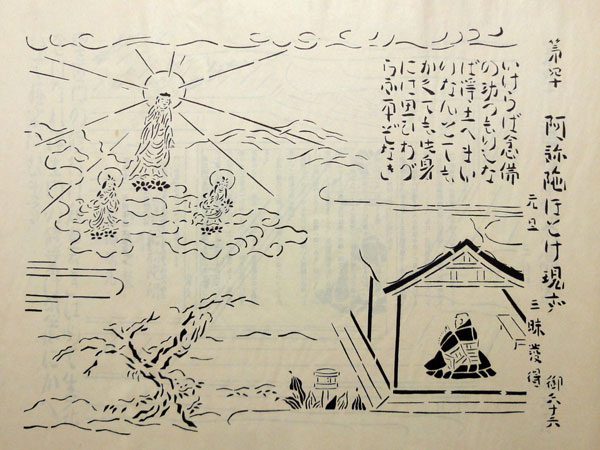 第四十 阿弥陁ほとけ現ず
元旦 三昧發得 御六十六
いけらば念佛
の功つもりしな
ば浄土へまい
りなんとても
かくても此身
には思ひわづ
らふ事ぞなき